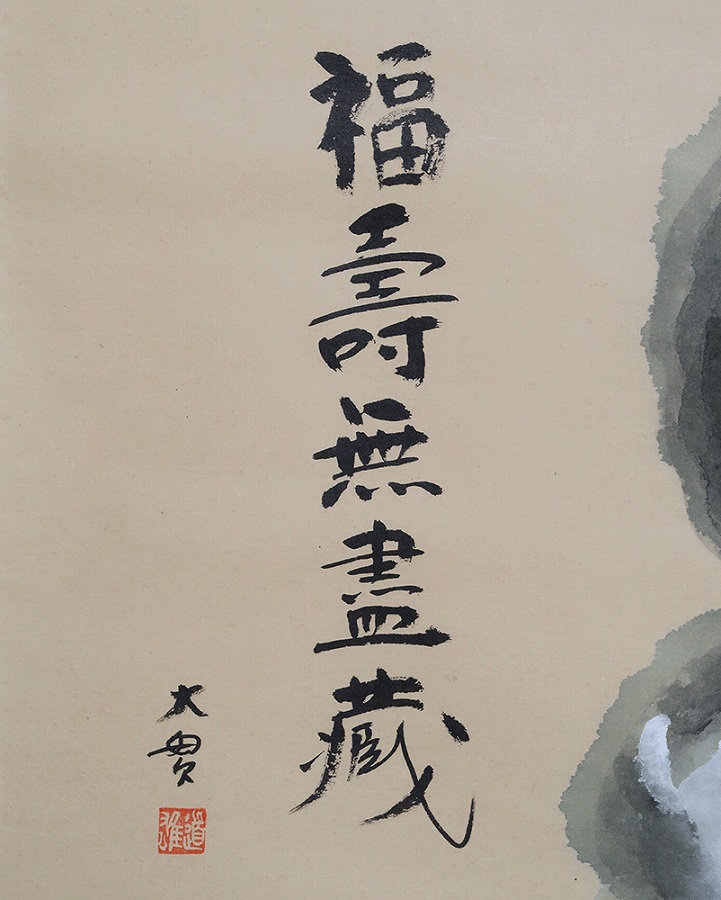 福壽無盡藏
大貫
道雄